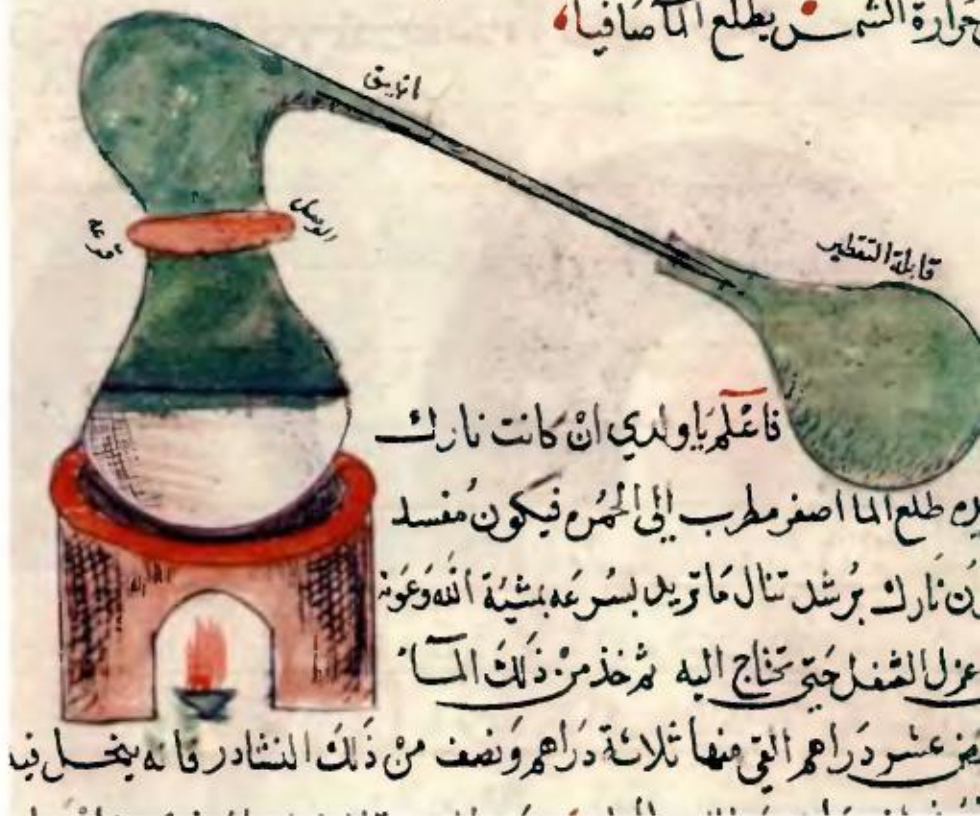 حرارة الشمس يطلع المآ صافيا
انبيق
الوصل
قرعه
قابلة التقطير
فاعْلم يَا ولدي انْ كانت نارك
طلع الما اصفر مطرب إلى الحُمره فيكون مُفسد
نَارك برُشد تنال مَا تريد بسُرعَه بمشيّة اللّه وَعَونه
عزل الثفل حَتى تحتاج اليه ثم خذ منْ ذلكَ المآء
عشر دَراهم القي منها ثلاثة دَراهم وَنصف منْ ذَلكَ النشادر فانه ينحل فيه